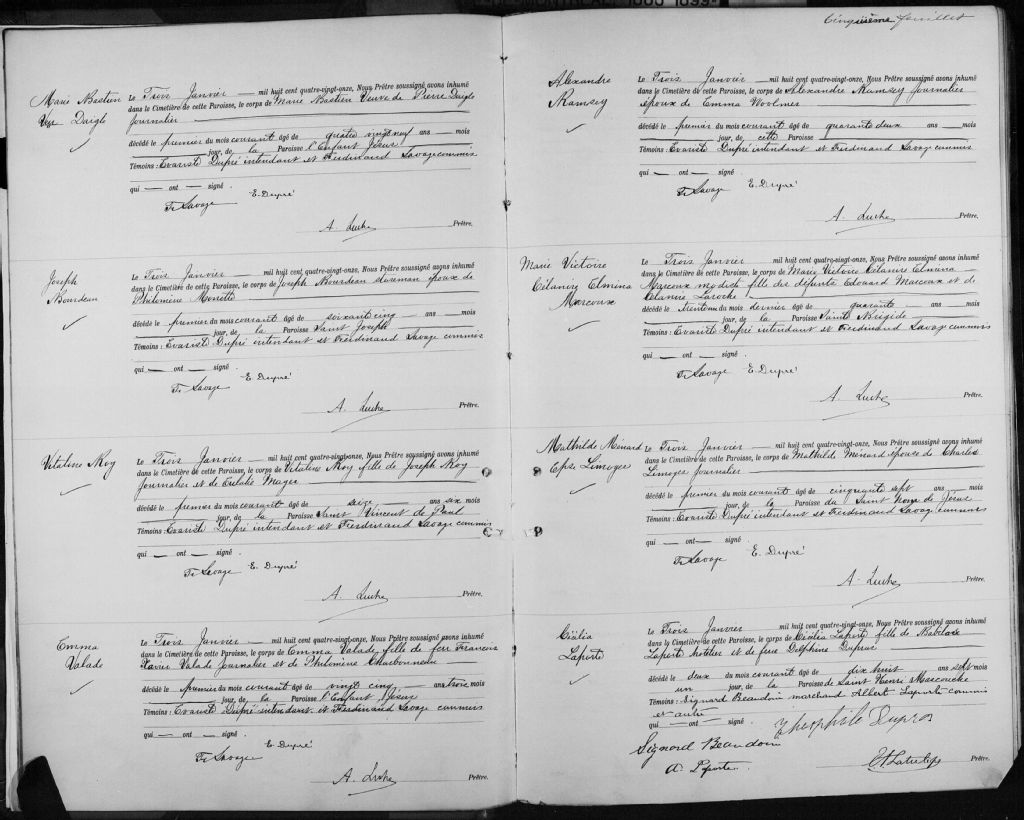 Cinquième feuillet
Marie Bastien
Vve Daigle
Le Trois Janvier mil huit cent quatre-vingt-onze, Nous Prêtre soussigné avons inhumé
dans le Cimetière de cette Paroisse, le corps de Marie Bastien Veuve de Pierre Daigle
Journalier
décédé le premier du mois courant âgé de quatre vingt neuf ans mois
jour, de la Paroisse l'Enfant Jésus
Témoins : Evariste Dupré intendant et Ferdinand Savage commis
qui ont signé.
F. Savage E. Dupré
Prêtre.
Joseph
Bourdeau
Le Trois Janvier mil huit cent quatre-vingt-onze, Nous Prêtre soussigné avons inhumé
dans le Cimetière de cette Paroisse, le corps de Joseph Bourdeau époux de
Philomène Monette
décédé le premier du mois courant âgé de soixante cinq ans mois
jour, de la Paroisse Saint Joseph
Témoins : Evariste Dupré intendant et Ferdinand Savage commis
qui ont signé
F. Savage E. Dupré
Prêtre.
Vitaline Roy
Le Trois Janvier mil huit cent quatre-vingt-onze, Nous Prêtre soussigné avons inhumé
dans le Cimetière de cette Paroisse, le corps de Vitaline Roy fille de Joseph Roy
Journalier et de
décédé le premier du mois courant âgé de seize ans six mois
jour, de la Paroisse Saint Vincent de Paul
Témoins : Evariste Dupré intendant et Ferdinand Savage commis
qui ont signé
F. Savage E. Dupré
Prêtre.
Emma
Valade
Le Trois Janvier mil huit cent quatre-vingt-onze, Nous Prêtre soussigné avons inhumé
dans le Cimetière de cette Paroisse, le corps de Emma Valade fille de feu Francois
Xavier Valade Journalier et de Philomène Charbonneau
décédé le premier du mois courant âgé de vingt cinq ans trois mois
jour, de la Paroisse l'Enfant Jésus
Témoins : Evariste Dupré intendant et Ferdinand Savage commis
qui ont signé
E. Dupré
F. Savage
Prêtre.
Alexandre
Ramsey
Le Trois Janvier mil huit cent quatre-vingt-onze, Nous Prêtre soussigné avons inhumé
dans le Cimetière de cette Paroisse, le corps de Alexandre Ramsey Journalier
époux de Emma Woolmer
décédé le premier du mois courant âgé de quarante deux ans mois
jour, de cette Paroisse
Témoins : Evariste Dupré intendant et Ferdinand Savage commis
qui ont signé
F. Savage E. Dupré
Prêtre.
Marie Victoire
Célanire Elmina
Marcoux
Le Trois Janvier mil huit cent quatre-vingt-onze, Nous Prêtre soussigné avons inhumé
dans le Cimetière de cette Paroisse, le corps de Marie Victoire Célanire Elmina
Marcoux modiste fille des défunts Edouard Marcoux et de
Célanire Laroche
décédé le trente un du mois dernier âgé de quarante ans mois
jour, de la Paroisse Sainte Brigide
Témoins : Evariste Dupré intendant et Ferdinand Savage commis
qui ont signé
F. Savage E. Dupré
Prêtre.
Mathilde Ménard
Epse Limoges
Le Trois Janvier mil huit cent quatre-vingt-onze, Nous Prêtre soussigné avons inhumé
dans le Cimetière de cette Paroisse, le corps de Mathilde Ménard épouse de Charles
Limoges Journalier
décédé le premier du mois courant âgé de cinquante sept ans mois
jour, de la Paroisse du Saint Nom de Jésus
Témoins : Evariste Dupré intendant et Ferdinand Savage commis
qui ont signé
F. Savage E. Dupré
Prêtre.
Célia
Laporte
Le Trois Janvier mil huit cent quatre-vingt-onze, Nous Prêtre soussigné avons inhumé
dans le Cimetière de cette Paroisse, le corps de Célia Laporte fille de
Laporte hôtelier et de feue Delphine Dupras
décédé le deux du mois courant âgé de dix huit ans sept mois
un jour, de la Paroisse de Saint Henri Mascouche
Témoins : Signard Beaudoin marchand Albert Laporte commis
et autre
qui ont signé. Théophile Dupras
Signard Beaudoin
Prêtre.